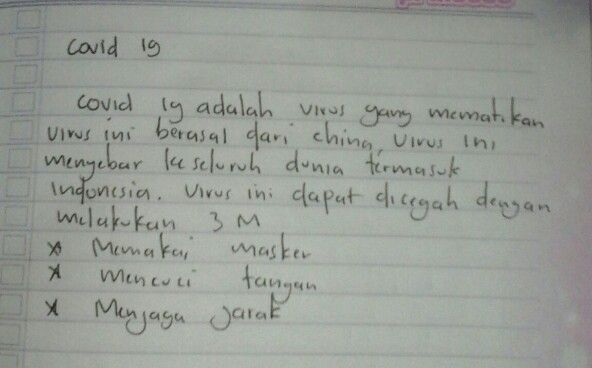 Covid 19
Covid 19 adalah virus yang mematikan
virus ini berasal dari china, virus ini
menyebar ke seluruh dunia termasuk
indonesia. virus ini dapat dicegah dengan
melakukan 3 M
* Memakai masker
* Mencuci tangan
* Menjaga jarak